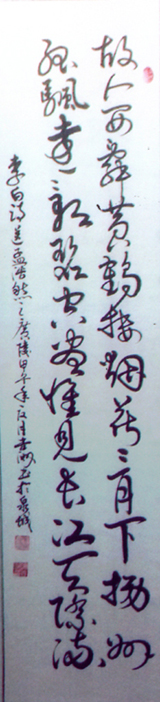 故人西辭黃鶴樓烟花三月下揚州
孤颿遠影碧空盡惟見長江天際流
李白詩送孟浩然之廣陵甲午年 月 於泉城